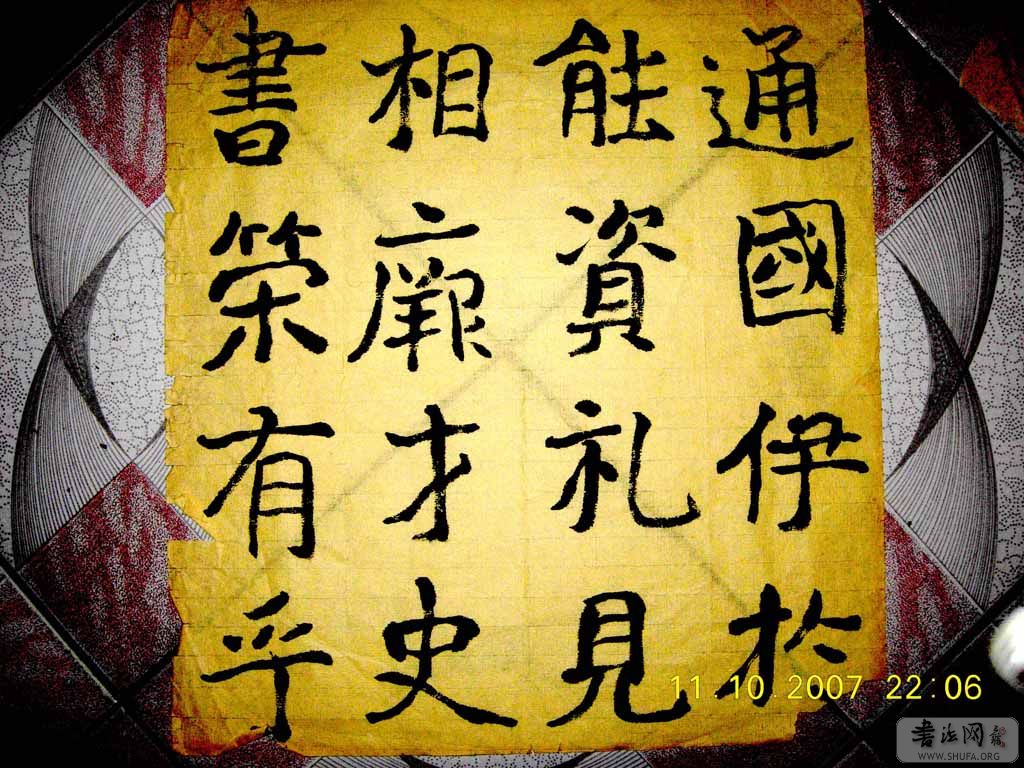 通國伊於
能資礼見
相才史
書策有乎
11.10.2007 22:06
書法网
WWW.SHUFA.ORG